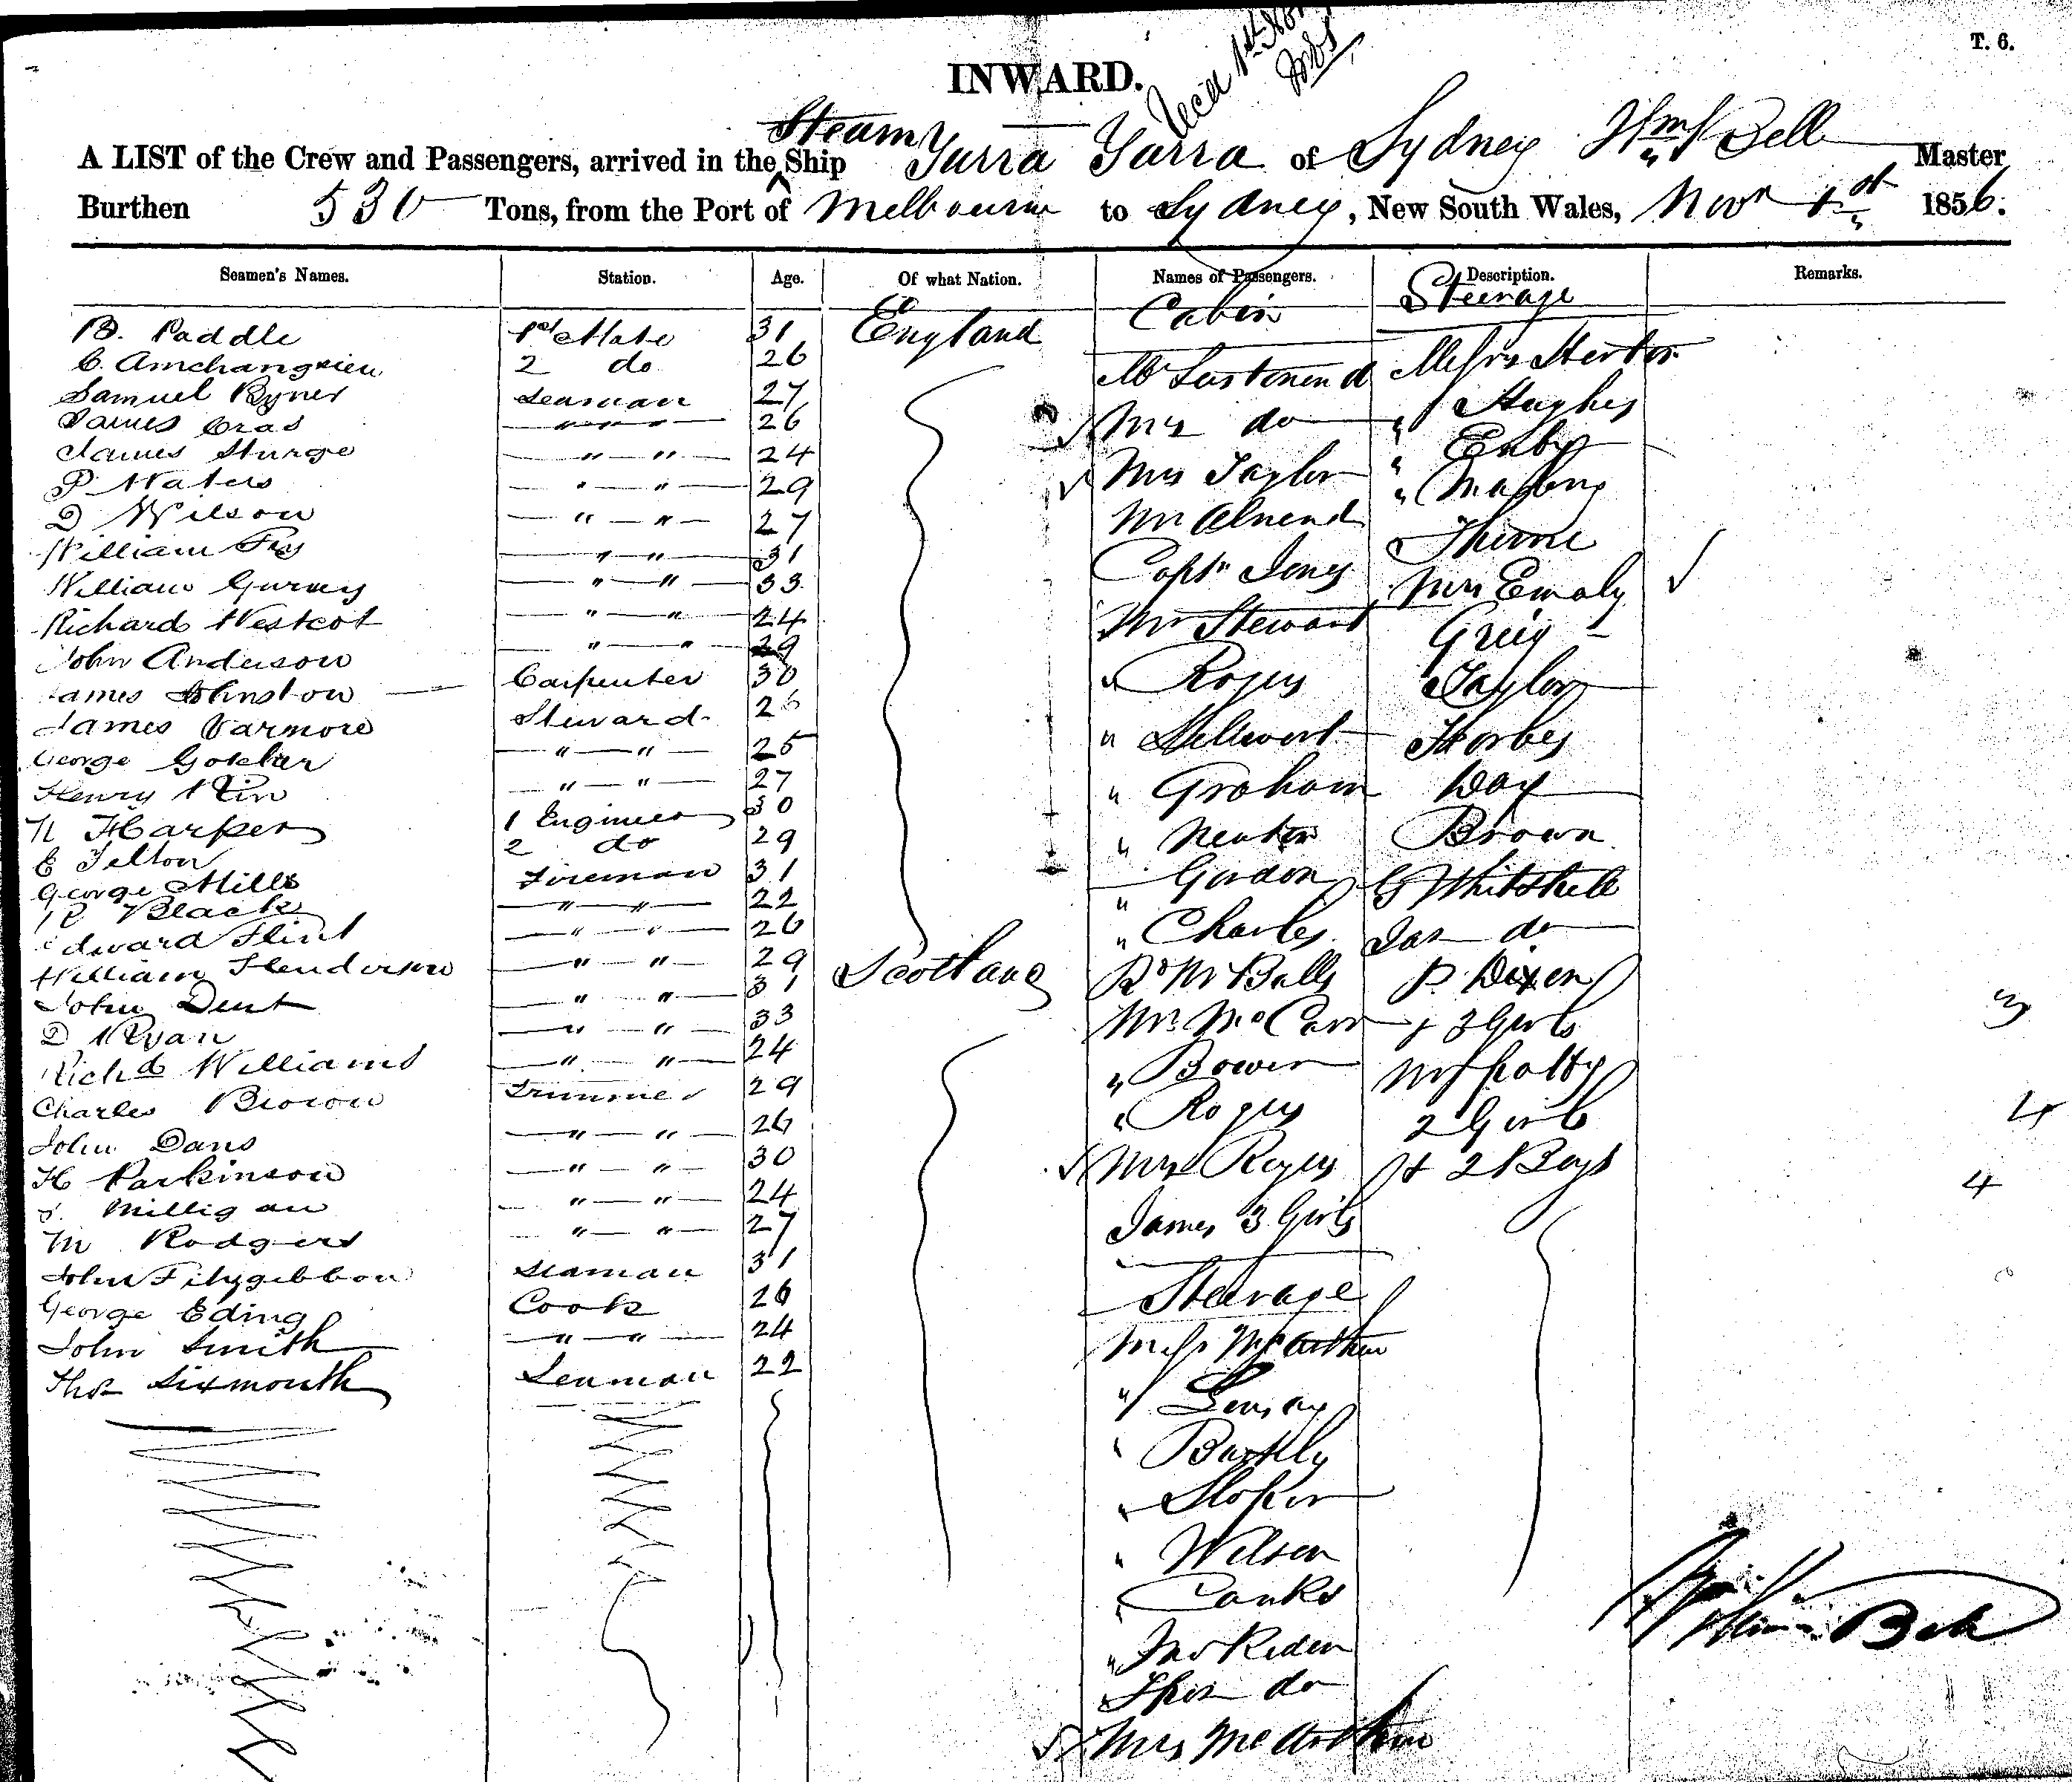 T. 6.
INWARD.
Recd 1st Nov
Steam
A LIST of the Crew and Passengers, arrived in the Ship Yarra Yarra of Sydney Wm Bell Master
Burthen 530 Tons, from the Port of Melbourne to Sydney, New South Wales, Novr 1st 1856.
Seamen's Names. Station. Age. Of what Nation. Names of Passengers. Description. Remarks.
Cabin Steerage
B. Paddle 1st Mate 31 England
C. 2 do 26
Samuel Ryner Seaman 27
James Cras " " 26
James Sturge " " 24
P Waters " " 29
D Wilson " " 27
William Fry " " 31
William Gurney " " 33
Richard Westcot " " 24
John Anderson " " 29
James Johnston Carpenter 30
James Varmore Steward 26
George " " 25
Henry " " 27
N Harper 1 Engineer 30
E Felton 2 do 29
George Mills Fireman 31
R Black " " 22
Edward Flint " " 26
William Henderson " " 29 Scotland
John Dent " " 31
D Ryan " " 33
Richd Williams " " 24
Charles Brown Trimmer 29
John Dans " " 26
H Parkinson " " 30
Milligan " " 24
M Rodgers " " 27
John Fitzgibbon Seaman 31
George Eding Cook 26
John Smith " " 24
Thos Sixmouth Seaman 22
Mr
Mrs do
Mrs Taylor
Mr Almend
Captn Jones
Mr Stewart
" Rogers
"
" Graham
" Newton
" Gordon
" Charles
Balls
Mr McCarr
" Bower
" Rogers
Mrs Rogers
James 3 Girls
Steerage
Messrs McArthur
"
"
" Stoker
" Wilson
" Banks
" Jno Reden
Thos do
Mrs McArthur
Messrs
" Hughes
"
"
Thorne
Mrs Emaly
Greig
Taylor
Forbes
Day
Brown
G Whitshell
Jas do
P. Dixon
+ 3 Girls 3
2 Girls 4
+ 2 Boys 4
William Bell